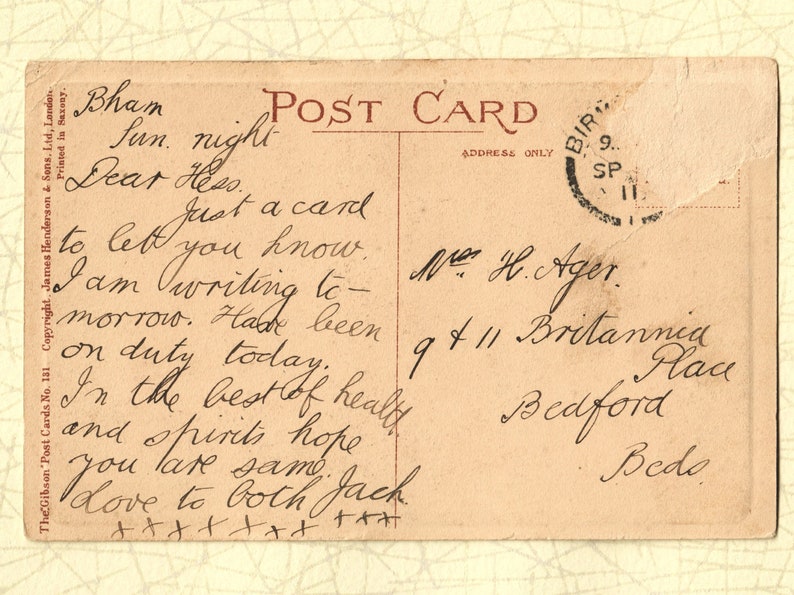 The "Gibson" Post Cards No. 131 Copyright. James Henderson & Sons. Ltd, London.
Printed in Saxony.
POST CARD
ADDRESS ONLY
Bham
Sun. night
Dear Hess.
Just a card
to let you know.
I am writing to-
morrow. Have been
on duty today.
In the best of health
and spirits hope
you are same.
Love to both Jack.
x x x x x x x x x x
SP
11
Mrs H. Ager.
9 & 11 Britannia
Place
Bedford
Beds.